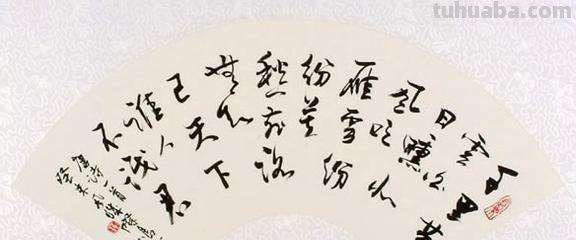 tuhuaba.com
千里黄
云白
日曛北
风吹
雁雪纷
纷莫
愁前路
无知
己天下
谁人
不识君